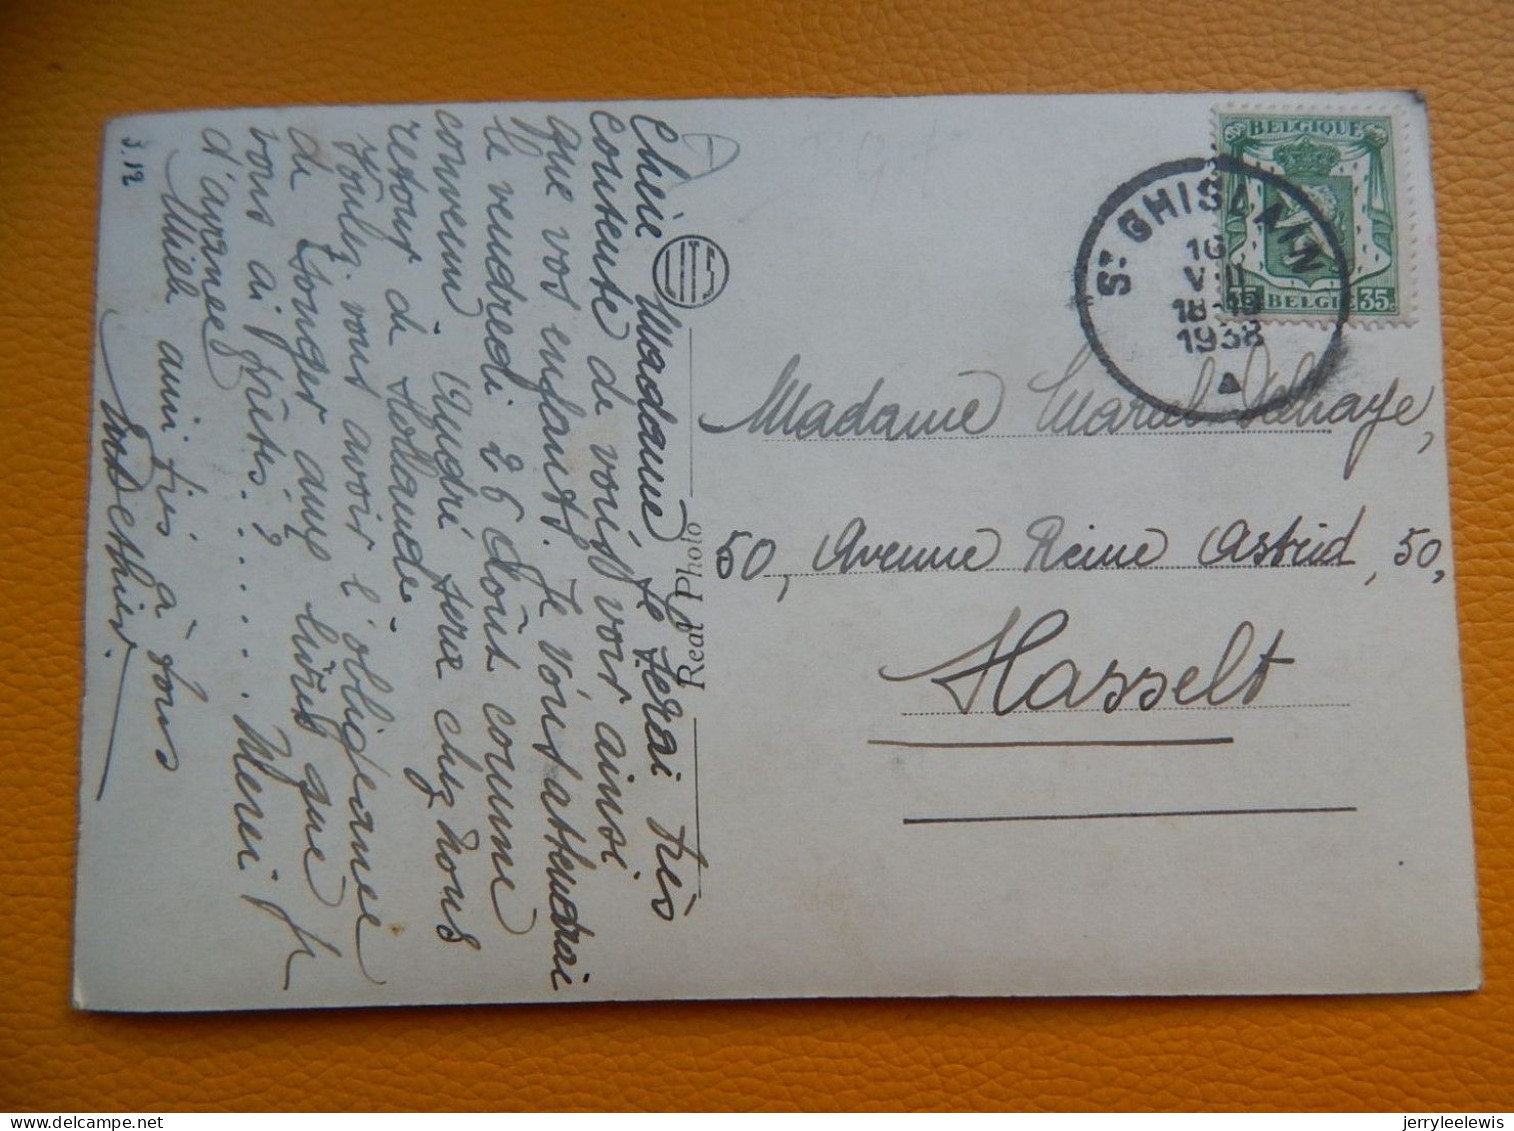 Chère Madame Je serai très
contente de vous voir ainsi
que vos enfants. Je vous attendrai
le vendredi 26 Août comme
convenu. André sera chez nous
retour de Hollande.
Voulez vous avoir l'obligeance
de songer aux livres que je
vous ai prêtés? Merci
d'avance.....
Mille amitiés à tous
3.12
LITS
Real Photo
BELGIQUE
35 BELGIE 35
ST GHISLAIN
16
VIII
18-19
1938
Madame Marcel Delhaye,
50, Avenue Reine Astrid, 50,
Hasselt
jerryleelewis